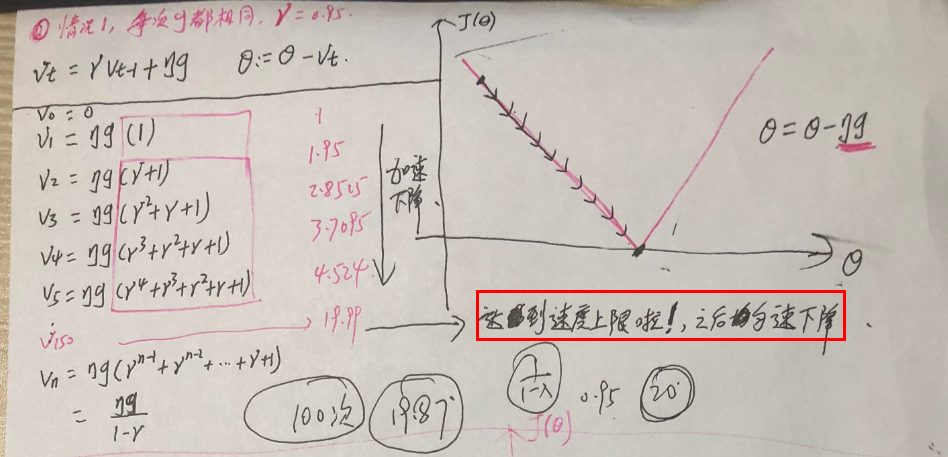 ① 情况1, 每次g都相同, γ=0.95.
Vt = γVt-1 + ηg θ:= θ - Vt.
V0 = 0
V1 = ηg (1) 1
V2 = ηg (γ+1) 1.95
V3 = ηg (γ²+γ+1) 2.8525
V4 = ηg (γ³+γ²+γ+1) 3.7095
V5 = ηg (γ⁴+γ³+γ²+γ+1) 4.524
V150 → 19.99
Vn = ηg (γⁿ⁻¹+γⁿ⁻²+...+γ+1)
= ηg/(1-γ)
加速
下降
J(θ)
θ = θ - ηg
θ
达到速度上限啦!, 之后匀速下降.
100次 19.87
1/(1-λ) 0.95 20
J(θ)